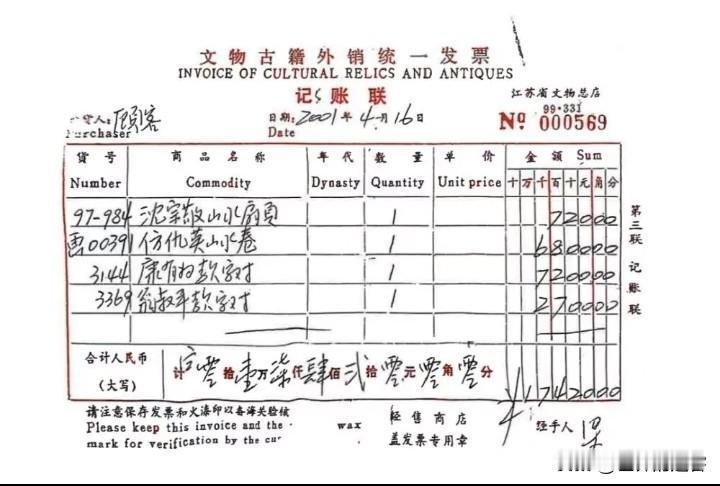 文物古籍外销统一发票
INVOICE OF CULTURAL RELICS AND ANTIQUES
记账联
江苏省文物总店
99·331
货人: 顾客
Purchaser
日期: 2001年4月16日
Date
№ 000569
货号 商品名称 年代 数量 单价 金额 Sum
Number Commodity Dynasty Quantity Unit price 十万千百十元角分
97-984 沈宗敬山水扇页 1 72000
画00391 仿仇英山水卷 1 680000
3144 康有为款字对 1 720000
3369 翁叔平款字对 1 270000
第三联 记账联
合计人民币
(大写)
计零拾壹万柒仟肆佰贰拾零元零角零分 ¥1742000
请注意保存发票和火漆印以备海关验核
Please keep this invoice and the wax
mark for verification by the cur
经售商店
盖发票专用章
经手人